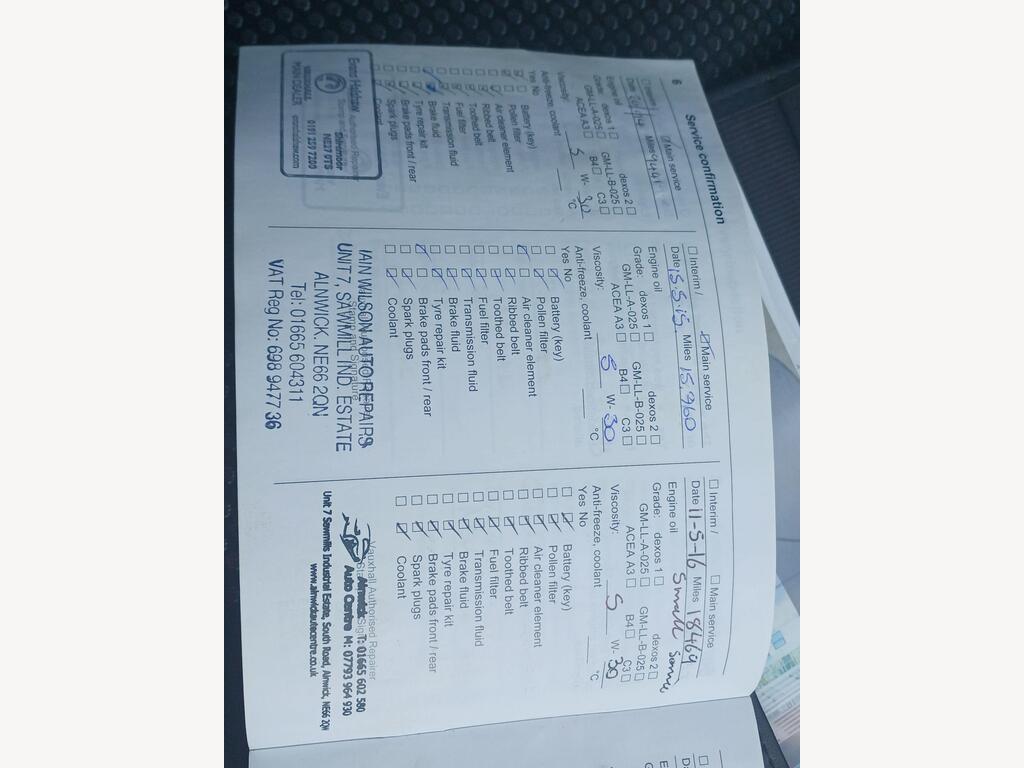 6
Service confirmation
Main service
Miles
Engine oil
Grade: dexos 1 dexos 2
GM-LL-A-025 GM-LL-B-025
ACEA A3 B4 C3
Viscosity: 5 W- 30
Anti-freeze, coolant °C
Yes No
Battery (key)
Pollen filter
Air cleaner element
Ribbed belt
Toothed belt
Fuel filter
Transmission fluid
Brake fluid
Tyre repair kit
Brake pads front / rear
Spark plugs
Coolant
Evans Halshaw
Authorised Repairer
Silverlink
NE27 0TS
0191 259 7200
VAUXHALL
MAIN DEALER
evanshalshaw.com
Interim / Main service
Date 15.5.15 Miles 15,960
Engine oil
Grade: dexos 1 dexos 2
GM-LL-A-025 GM-LL-B-025
ACEA A3 B4 C3
Viscosity: 5 W- 30
Anti-freeze, coolant °C
Yes No
Battery (key)
Pollen filter
Air cleaner element
Ribbed belt
Toothed belt
Fuel filter
Transmission fluid
Brake fluid
Tyre repair kit
Brake pads front / rear
Spark plugs
Coolant
Stamp and Signature
IAIN WILSON AUTO REPAIRS
UNIT 7, SAWMILL IND. ESTATE
ALNWICK. NE66 2QN
Tel: 01665 604311
VAT Reg No: 698 9477 36
Interim / Main service
Date 11-5-16 Miles 18469
Small
Engine oil
Grade: dexos 1 dexos 2
GM-LL-A-025 GM-LL-B-025
ACEA A3 B4 C3
Viscosity: 5 W- 30
Anti-freeze, coolant °C
Yes No
Battery (key)
Pollen filter
Air cleaner element
Ribbed belt
Toothed belt
Fuel filter
Transmission fluid
Brake fluid
Tyre repair kit
Brake pads front / rear
Spark plugs
Coolant
Vauxhall Authorised Repairer
Alnwick T: 01665 602 580
Auto Centre M: 07793 964 930
Unit 7 Sawmills Industrial Estate, South Road, Alnwick, NE66 2QN
www.alnwickautocentre.co.uk